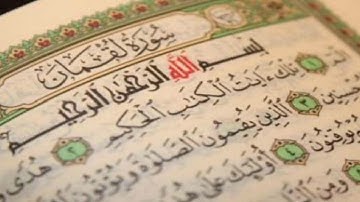 سُورَةُ لُقْمَانَ
بِسْمِ اللَّهِ الرَّحْمَٰنِ الرَّحِيمِ
١ تِلْكَ ءَايَٰتُ الْكِتَٰبِ الْحَكِيمِ ٢ هُدًى
٣ الَّذِينَ يُقِيمُونَ الصَّلَوٰةَ وَيُؤْتُونَ
يُوقِنُونَ ٤ أُولَٰئِكَ عَلَىٰ
وَمِنَ